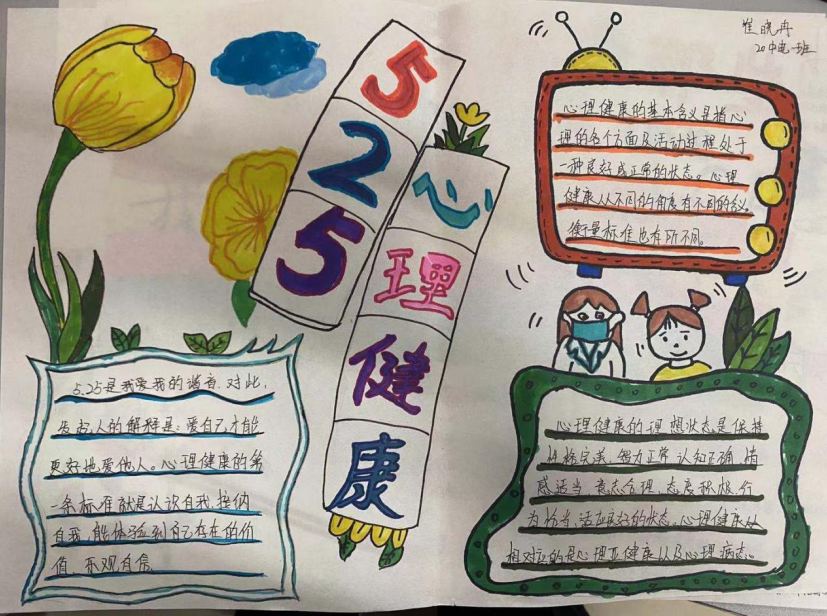 崔晓冉
20中电一班
525
心理健康
心理健康的基本含义是指心
理的各个方面及活动过程处于
一种良好或正常的状态。心理
健康从不同的角度有不同的含义,
衡量标准也有所不同。
5.25是我爱我的谐音.对此,
发起人的解释是:爱自己才能
更好地爱他人。心理健康的第
一条标准就是认识自我,接纳
自我,能体验到自己存在的价
值、乐观自信
心理健康的理想状态是保持
性格完美、智力正常、认知正确、情
感适当、意志合理、态度积极、行
为恰当、适应良好的状态。心理健康从
相对应的是心理亚健康以及心理病态。